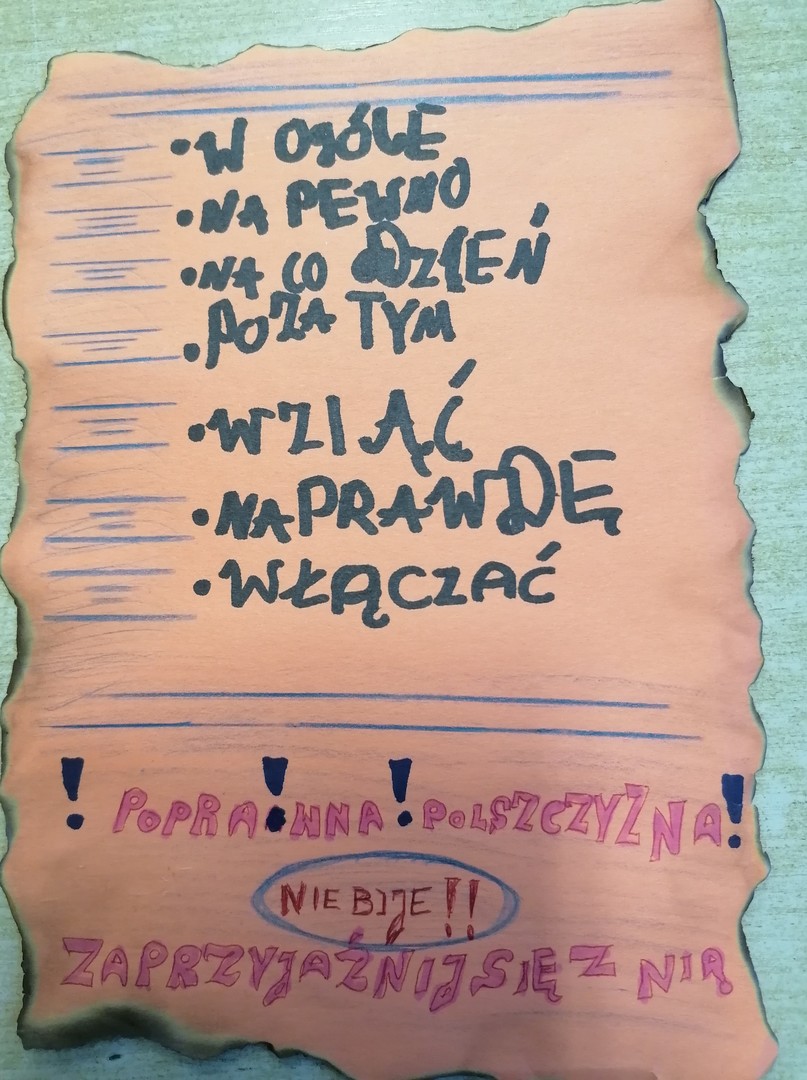 • W OGÓLE
• NA PEWNO
• NA CO DZIEŃ
• POZA TYM
• WZIĄĆ
• NAPRAWDĘ
• WŁĄCZAĆ
! POPRA!WNA ! POLSZCZYZNA!
NIE BIJE!!
ZAPRZYJAŹNIJ SIĘ Z NIĄ